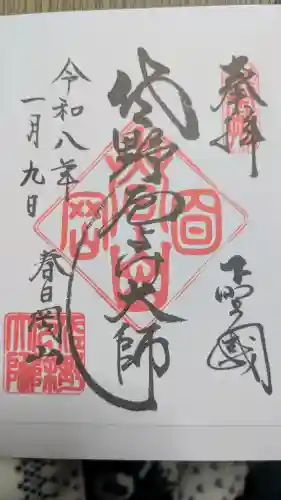 奉拝
下野國
佐野厄よけ大師
春日岡山
令和八年
一月九日